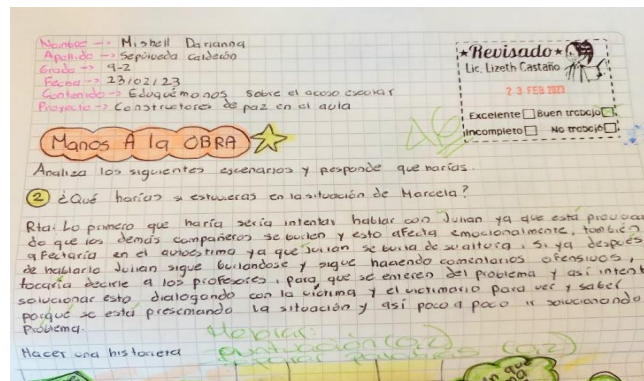 Nombre --> Mishell Darianna
Apellido --> Sepúlveda calderón
Grado --> 9-2
Fecha --> 23/02/23
Contenido --> Eduquémonos sobre el acoso escolar
Proyecto --> Constructores de paz en el aula
★Revisado★
Lic. Lizeth Castaño
23 FEB 2023
Excelente Buen trabajo
Incompleto No trabajó
Manos A la OBRA
Analiza los siguientes escenarios y responde que harías.
2 ¿Qué harías si estuvieras en la situación de Marcela?
Rta: Lo primero que haría sería intentar hablar con Julian ya que está provocan
do que los demás compañeros se burlen y esto afecta emocionalmente, también
afectaría en el autoestima ya que Julian se burla de su altura. Si ya después
de hablarlo Julian sigue burlandose y sigue haciendo comentarios ofensivos,
tocaría decirle a los profesores, para que se enteren del problema y así intent
solucionar esto, dialogando con la víctima y el victimario para ver y saber
porqué se está presentando la situación y así poco a poco ir solucionando
problema.
Mejorar:
puntuación (0,2)
(0,2)
Hacer una historieta
en que
la